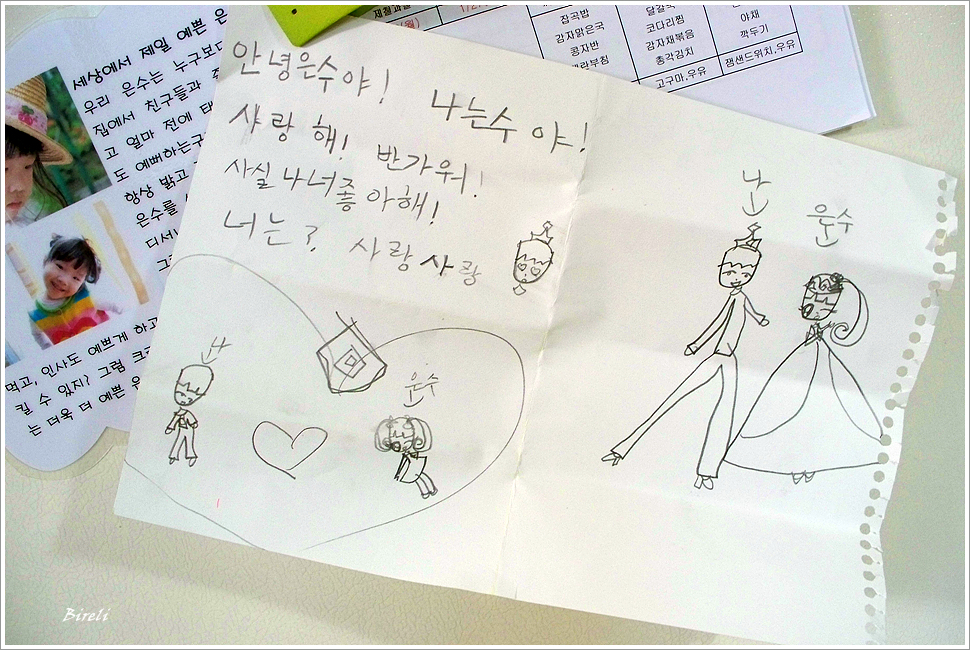 안녕은수야! 나는수야!
사랑해! 반가워!
사실나너좋아해!
너는? 사랑사랑
나
은수
나
은수
세상에서 제일 예쁜 은
우리 은수는 누구보다
집에서 친구들과
고 얼마 전에
도 예뻐하는
항상 밝고
은수를
먹고, 인사도 예쁘게 하고
킬 수 있지? 그럼
는 더욱 더 예쁜
잡곡밥
감자맑은국
콩자반
달걀국
코다리찜
감자채볶음
총각김치
고구마,우유
야채
깍두기
잼샌드위치,우유
Bireli